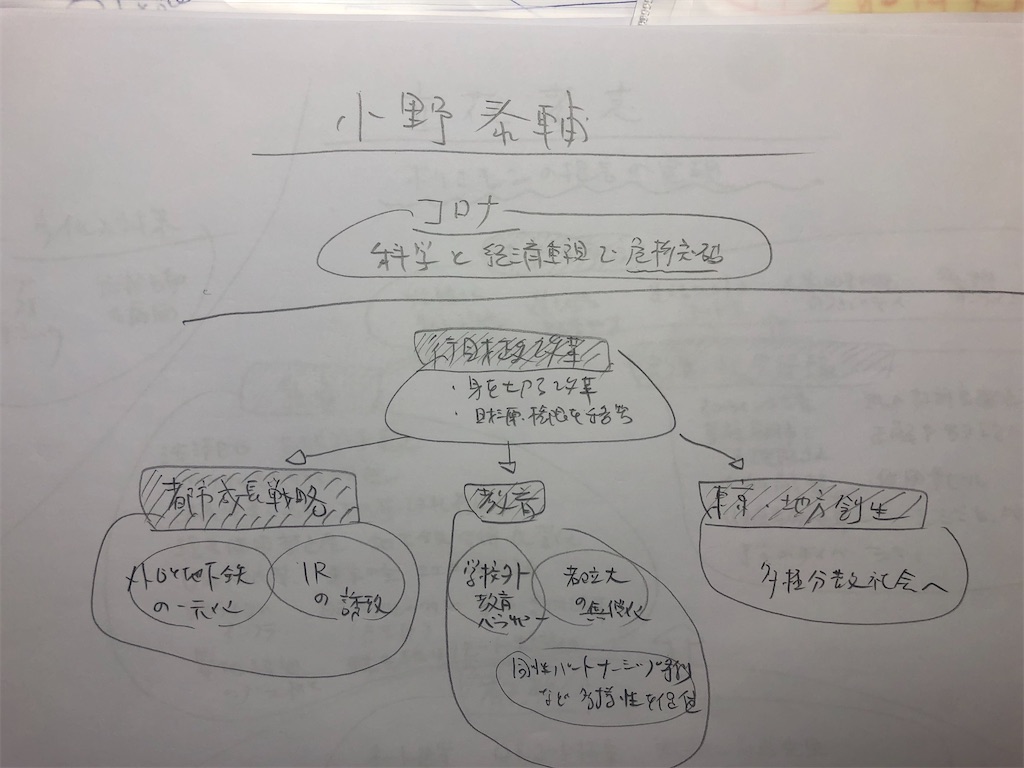 小野泰輔
コロナ
科学と経済重視で危機突破
行財政改革
・身を切る改革
・財源・権地を
都市成長戦略
教育
東京・地方創生
メトロと地下鉄
の一元化
IR
の誘致
学校外
教育
バウチャー
都立大
の無償化
多極分散文社会へ
同性パートナーシップ条例
など多様性を促進